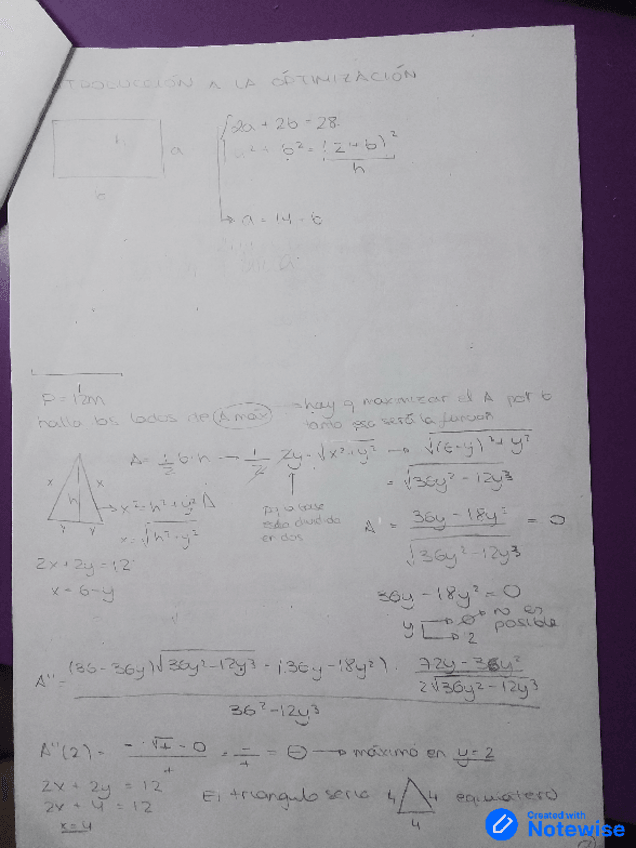 INTRODUCCIÓN A LA OPTIMIZACIÓN
h
a
b
2a + 2b = 28
a² + b² =
h
a = 14 - b
P = 12m
halla los lados de A máx → hay q maximizar el A por lo
tanto esa será la función
A = 1/2 b·h — 1/2 2y · √x²+y² → √(6-y)²+y²
= √36y² - 12y³
x x h y y
x² = h² + y²
x = √h² + y²
Aquí la base
está dividida
en dos
A' = 36y - 18y² / √36y² - 12y³ = 0
2x + 2y = 12
x = 6 - y
36y - 18y² = 0
y → 0 → no es
posible
→ 2
A'' = (36 - 36y)√36y² - 12y³ - (36y - 18y²) · 72y - 36y² / 2√36y² - 12y³
36² - 12y³
A''(2) = -·√+ - 0 / + = - / + = ⊖ → máximo en y = 2
2x + 2y = 12
2x + 4 = 12
x = 4
El triangulo seria 4 4 4 equilatero
Created with
Notewise